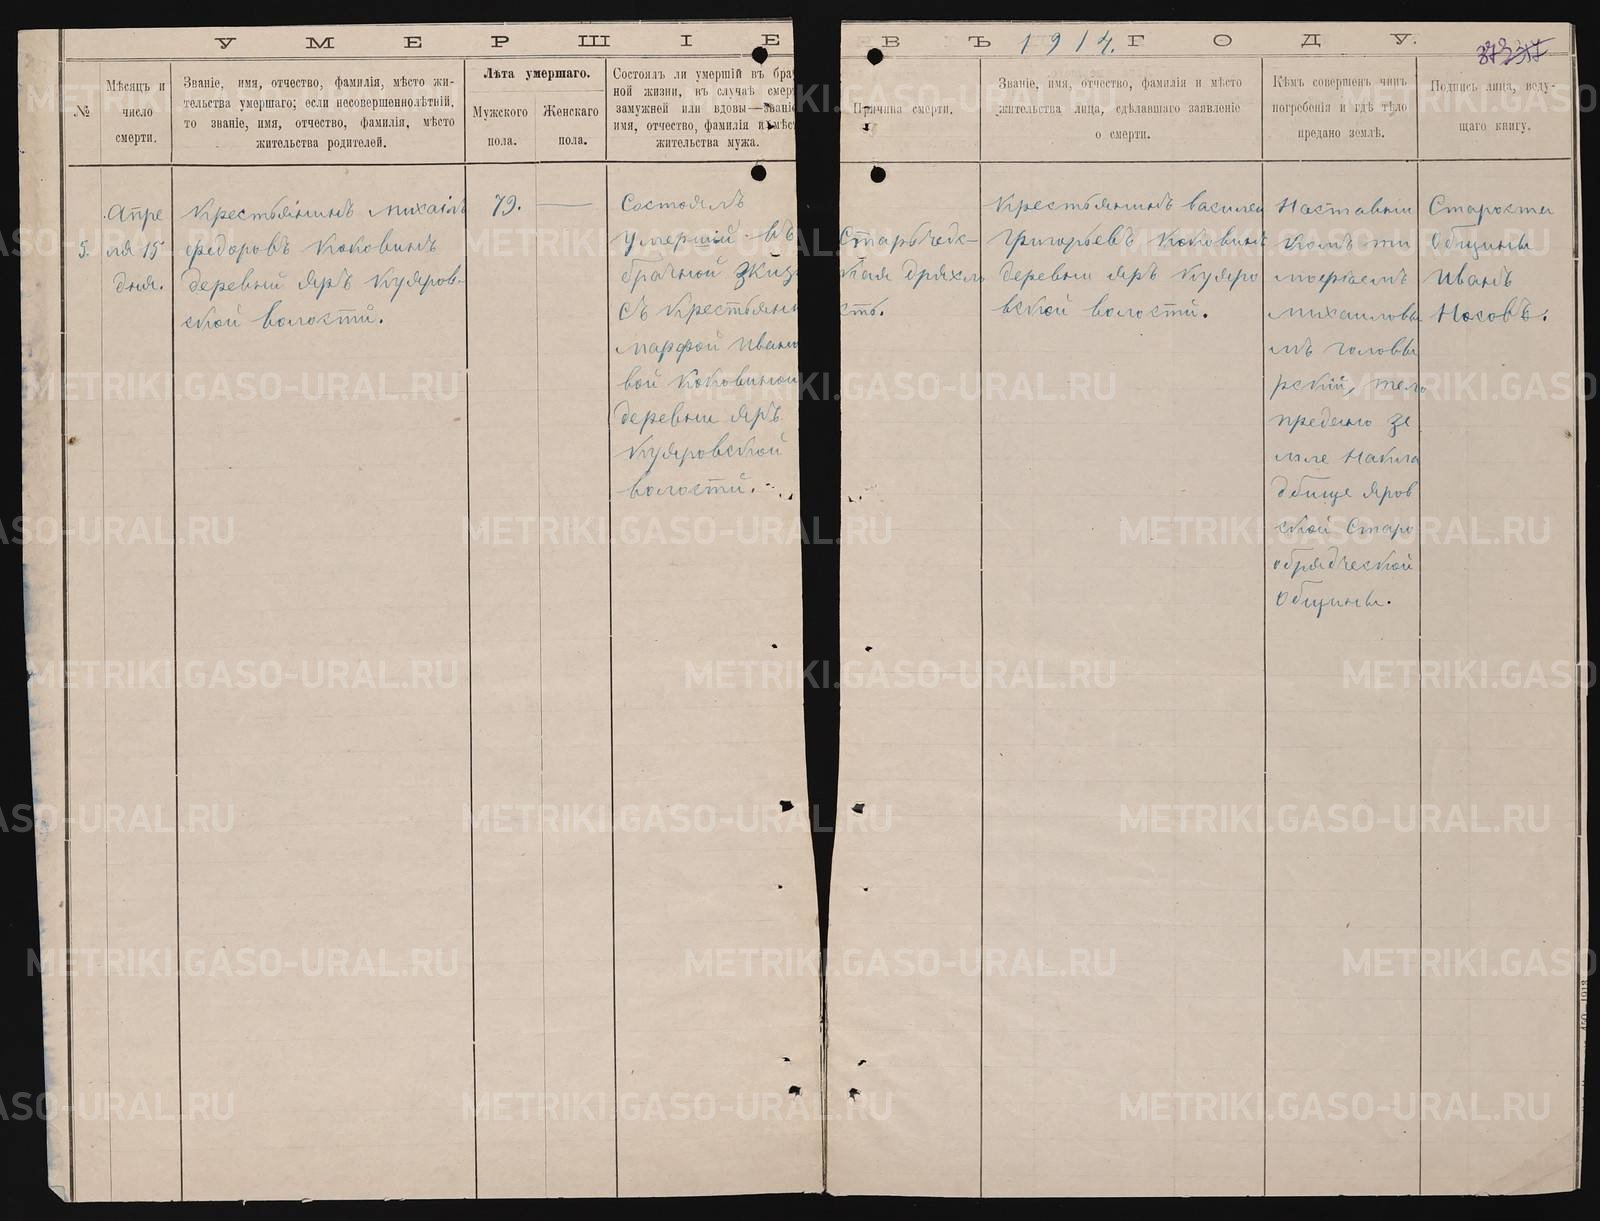 УМЕРШІЕ ВЪ 1914. ГОДУ.
№
Мѣсяцъ и
число
смерти.
Званіе, имя, отчество, фамилія, мѣсто жи-
тельства умершаго; если несовершеннолѣтній,
то званіе, имя, отчество, фамилія, мѣсто
жительства родителей.
Лѣта умершаго.
Мужского
пола.
Женскаго
пола.
Состоялъ ли умершій въ бра
ной жизни, въ случаѣ смер
замужней или вдовы—званіе
имя, отчество, фамилія и мѣс
жительства мужа.
Причина смерти.
Званіе, имя, отчество, фамилія и мѣсто
жительства лица, сдѣлавшаго заявленіе
о смерти.
Кѣмъ совершенъ чинъ
погребенія и гдѣ тѣло
предано землѣ.
Подпись лица, веду-
щаго книгу.
5.
Апре
ля 15
дня.
Крестьянинъ михаилъ
федоровъ Коковинъ
деревни яръ Куяров-
ской волости.
79. —
Состоялъ
умерший въ
брачной жиз
съ Крестьян
марфой Иван
вой Коковиной
деревни яръ
Куяровской
волости.
Старческ-
кая дряхло
сть.
Крестьянинъ василеи
Григорьевъ Коковинъ
деревни яръ Куяро
вской волости.
Наставни
комъ ти
мофѣемъ
михаиловы
мъ головы
рский, тело
предано зе
мле Накла
дбище яров
ской Старо
обрядческой
Общины.
Старосты
Общины
Иванъ
Носовъ.
METRIKI.GASO-URAL.RU